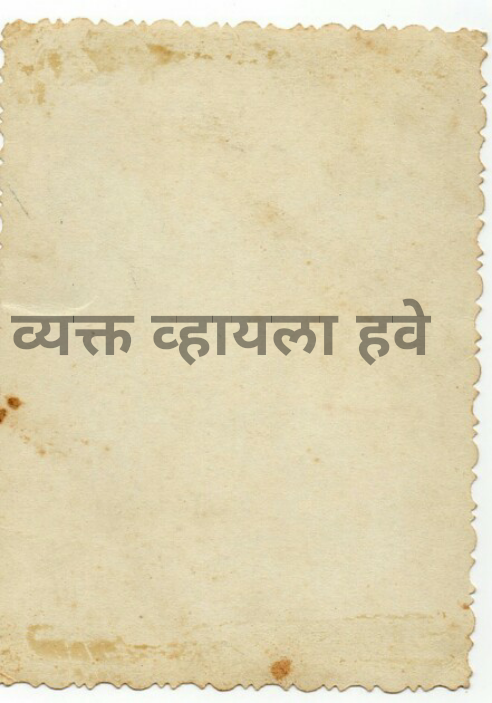 व्यक्त व्हायला हवे